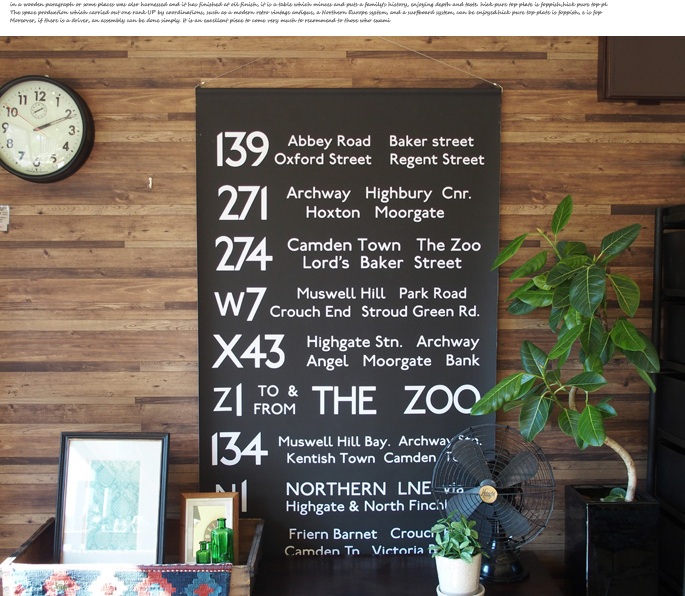 in a wooden paragraph or some places was also harnessed and it has finished at oil finish, it is a table which minces and puts a family's history, enjoying depth and taste. hick pure top plate is foppish,hick pure top pl
The space production which carried out one rank UP by coordinations, such as a modern retro vintage antique, a Northern Europe system, and a surfboard system, can be enjoyed.hick pure top plate is foppish, e is fop
Moreover, if there is a driver, an assembly can be done simply. It is an excellent piece to come very much to recommend to those who swani
139 Abbey Road Baker street
Oxford Street Regent Street
271 Archway Highbury Cnr.
Hoxton Moorgate
274 Camden Town The Zoo
Lord's Baker Street
W7 Muswell Hill Park Road
Crouch End Stroud Green Rd.
X43 Highgate Stn. Archway
Angel Moorgate Bank
Z1 TO & FROM THE ZOO
134 Muswell Hill Bay. Archway Stn.
Kentish Town Camden
N1 NORTHERN LNE via
Highgate & North Finchl
Friern Barnet Crouc
Camden Tn Victoria
12
1
2
3
4
5
6
7
8
9
10
11